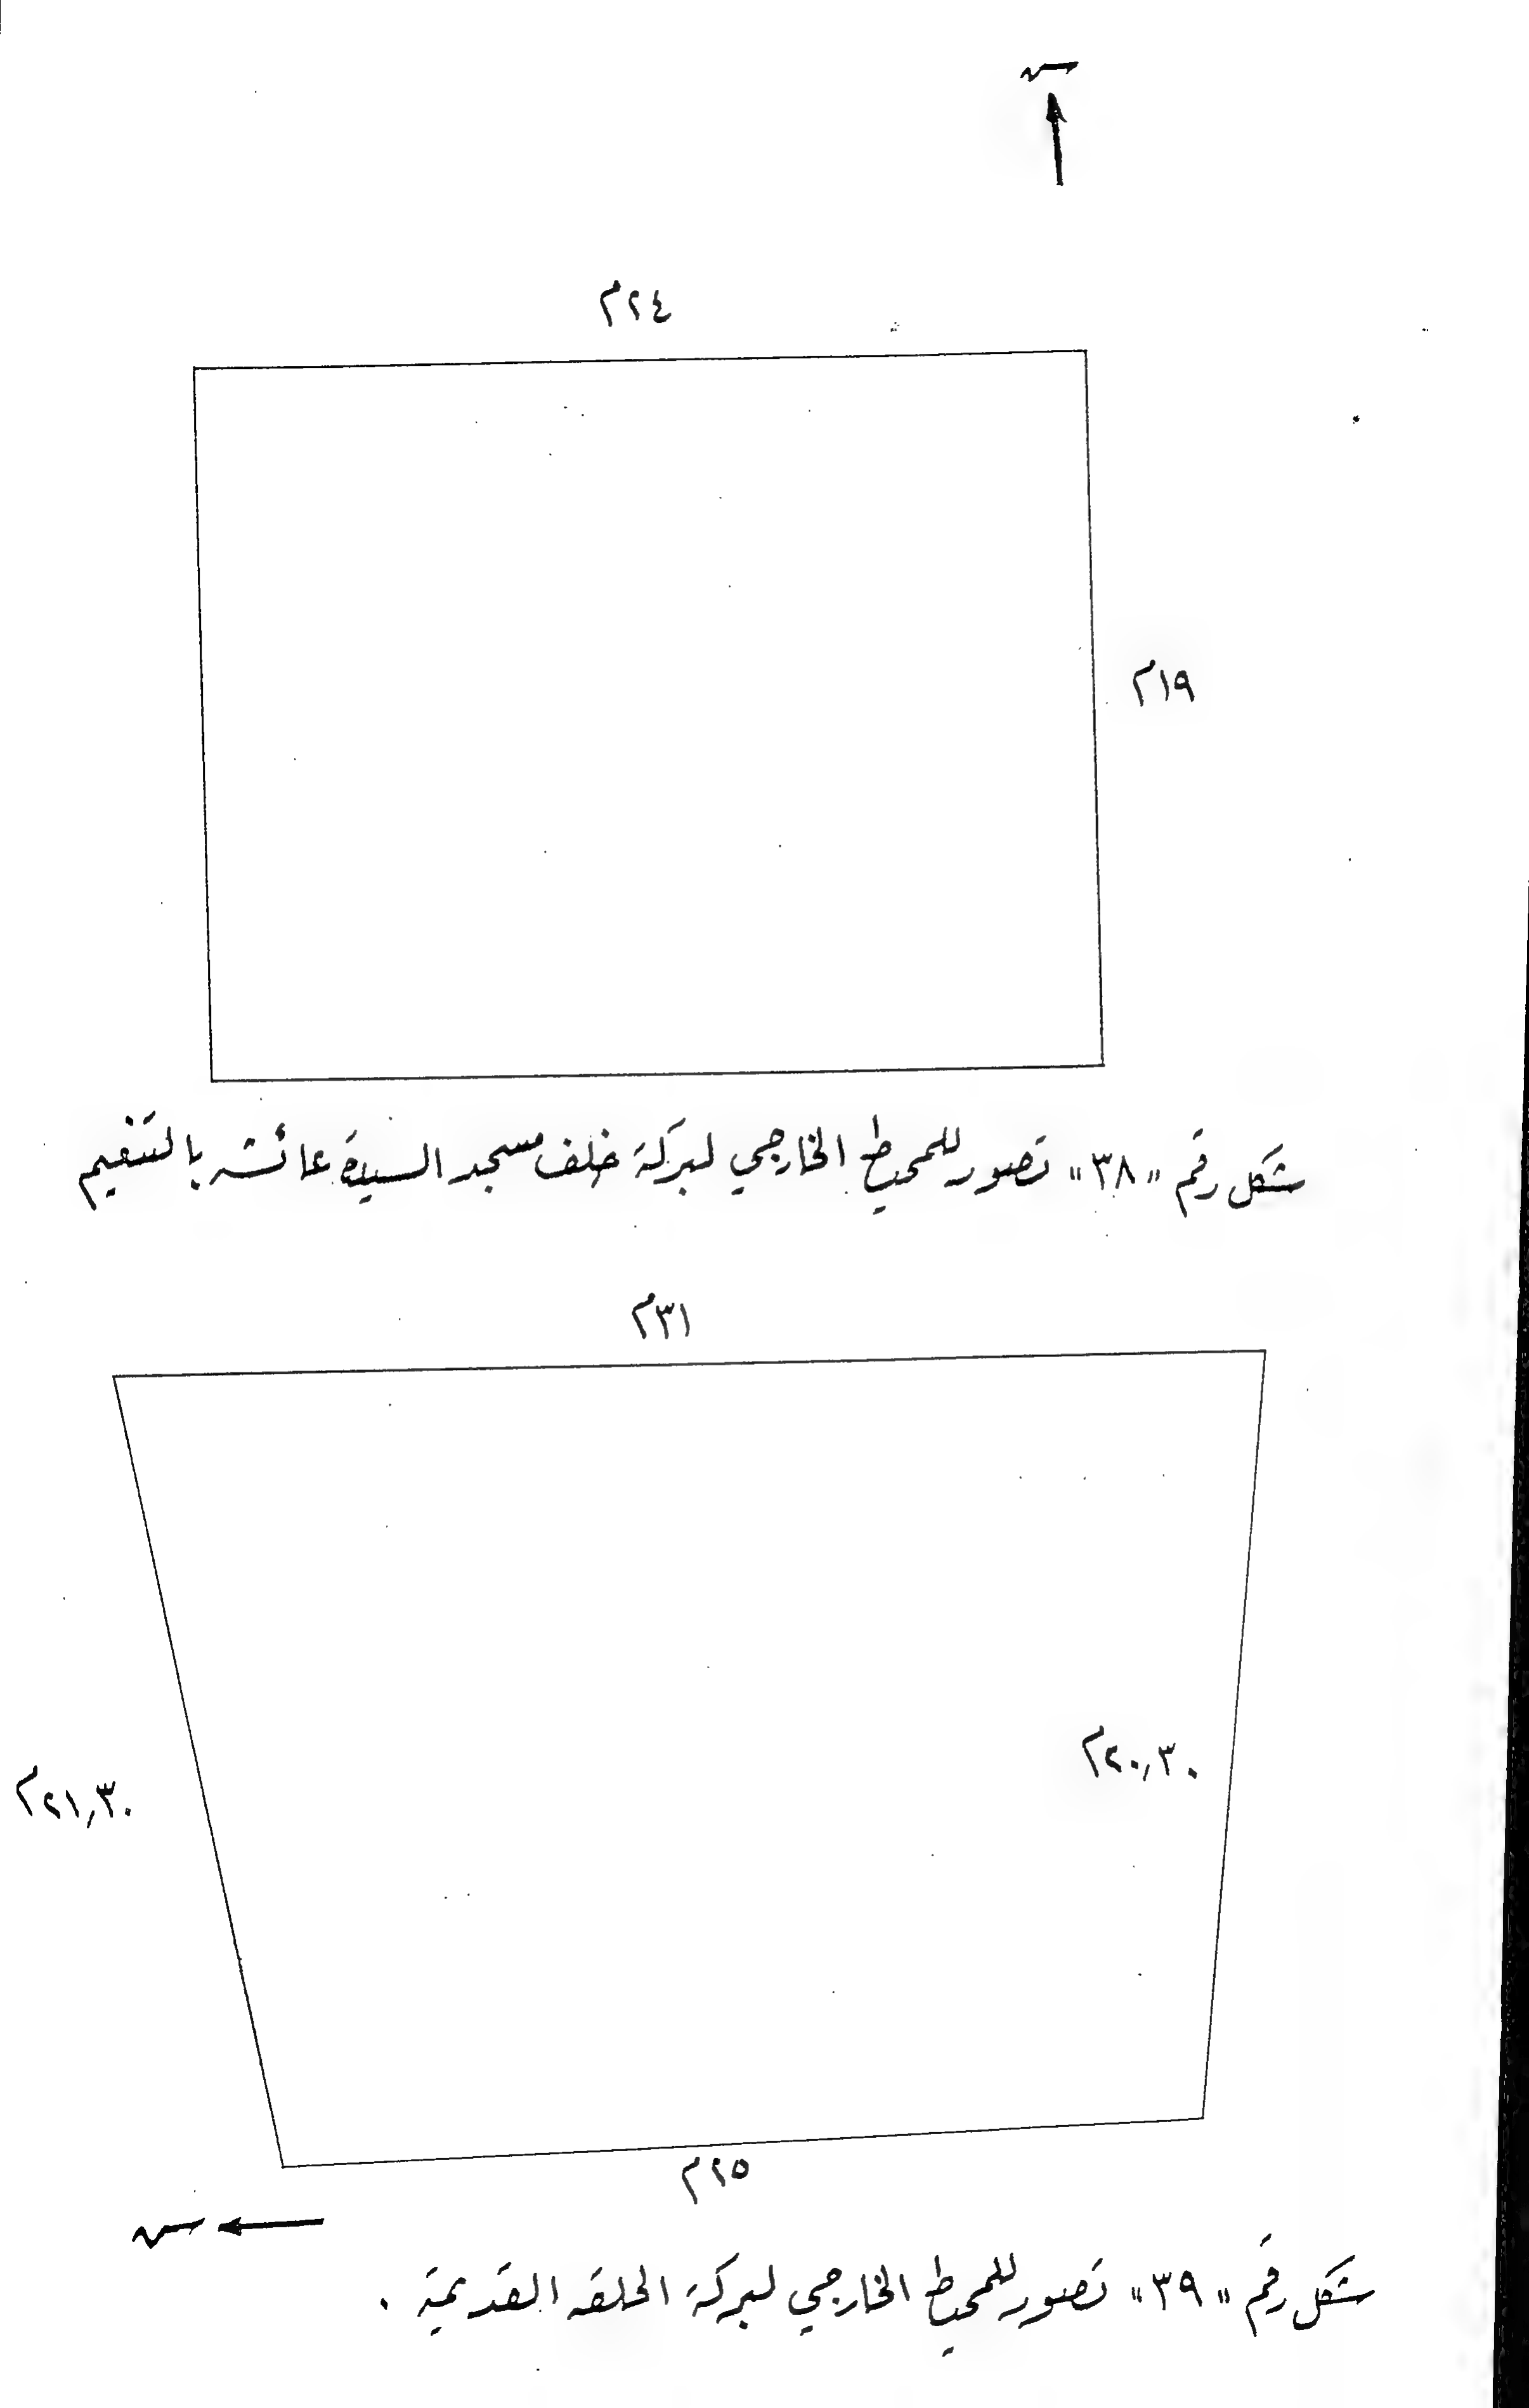 ٢٤م
١٩م
شكل رقم "٣٨" تصور للمحيط الخارجي لبركة خلف مسجد السيدة عائشه بالتنعيم
٣١م
٢٠,٣٠م
٢١,٣٠م
٢٥م
شكل رقم "٣٩" تصور للمحيط الخارجي لبركة الحلقه القديمة .